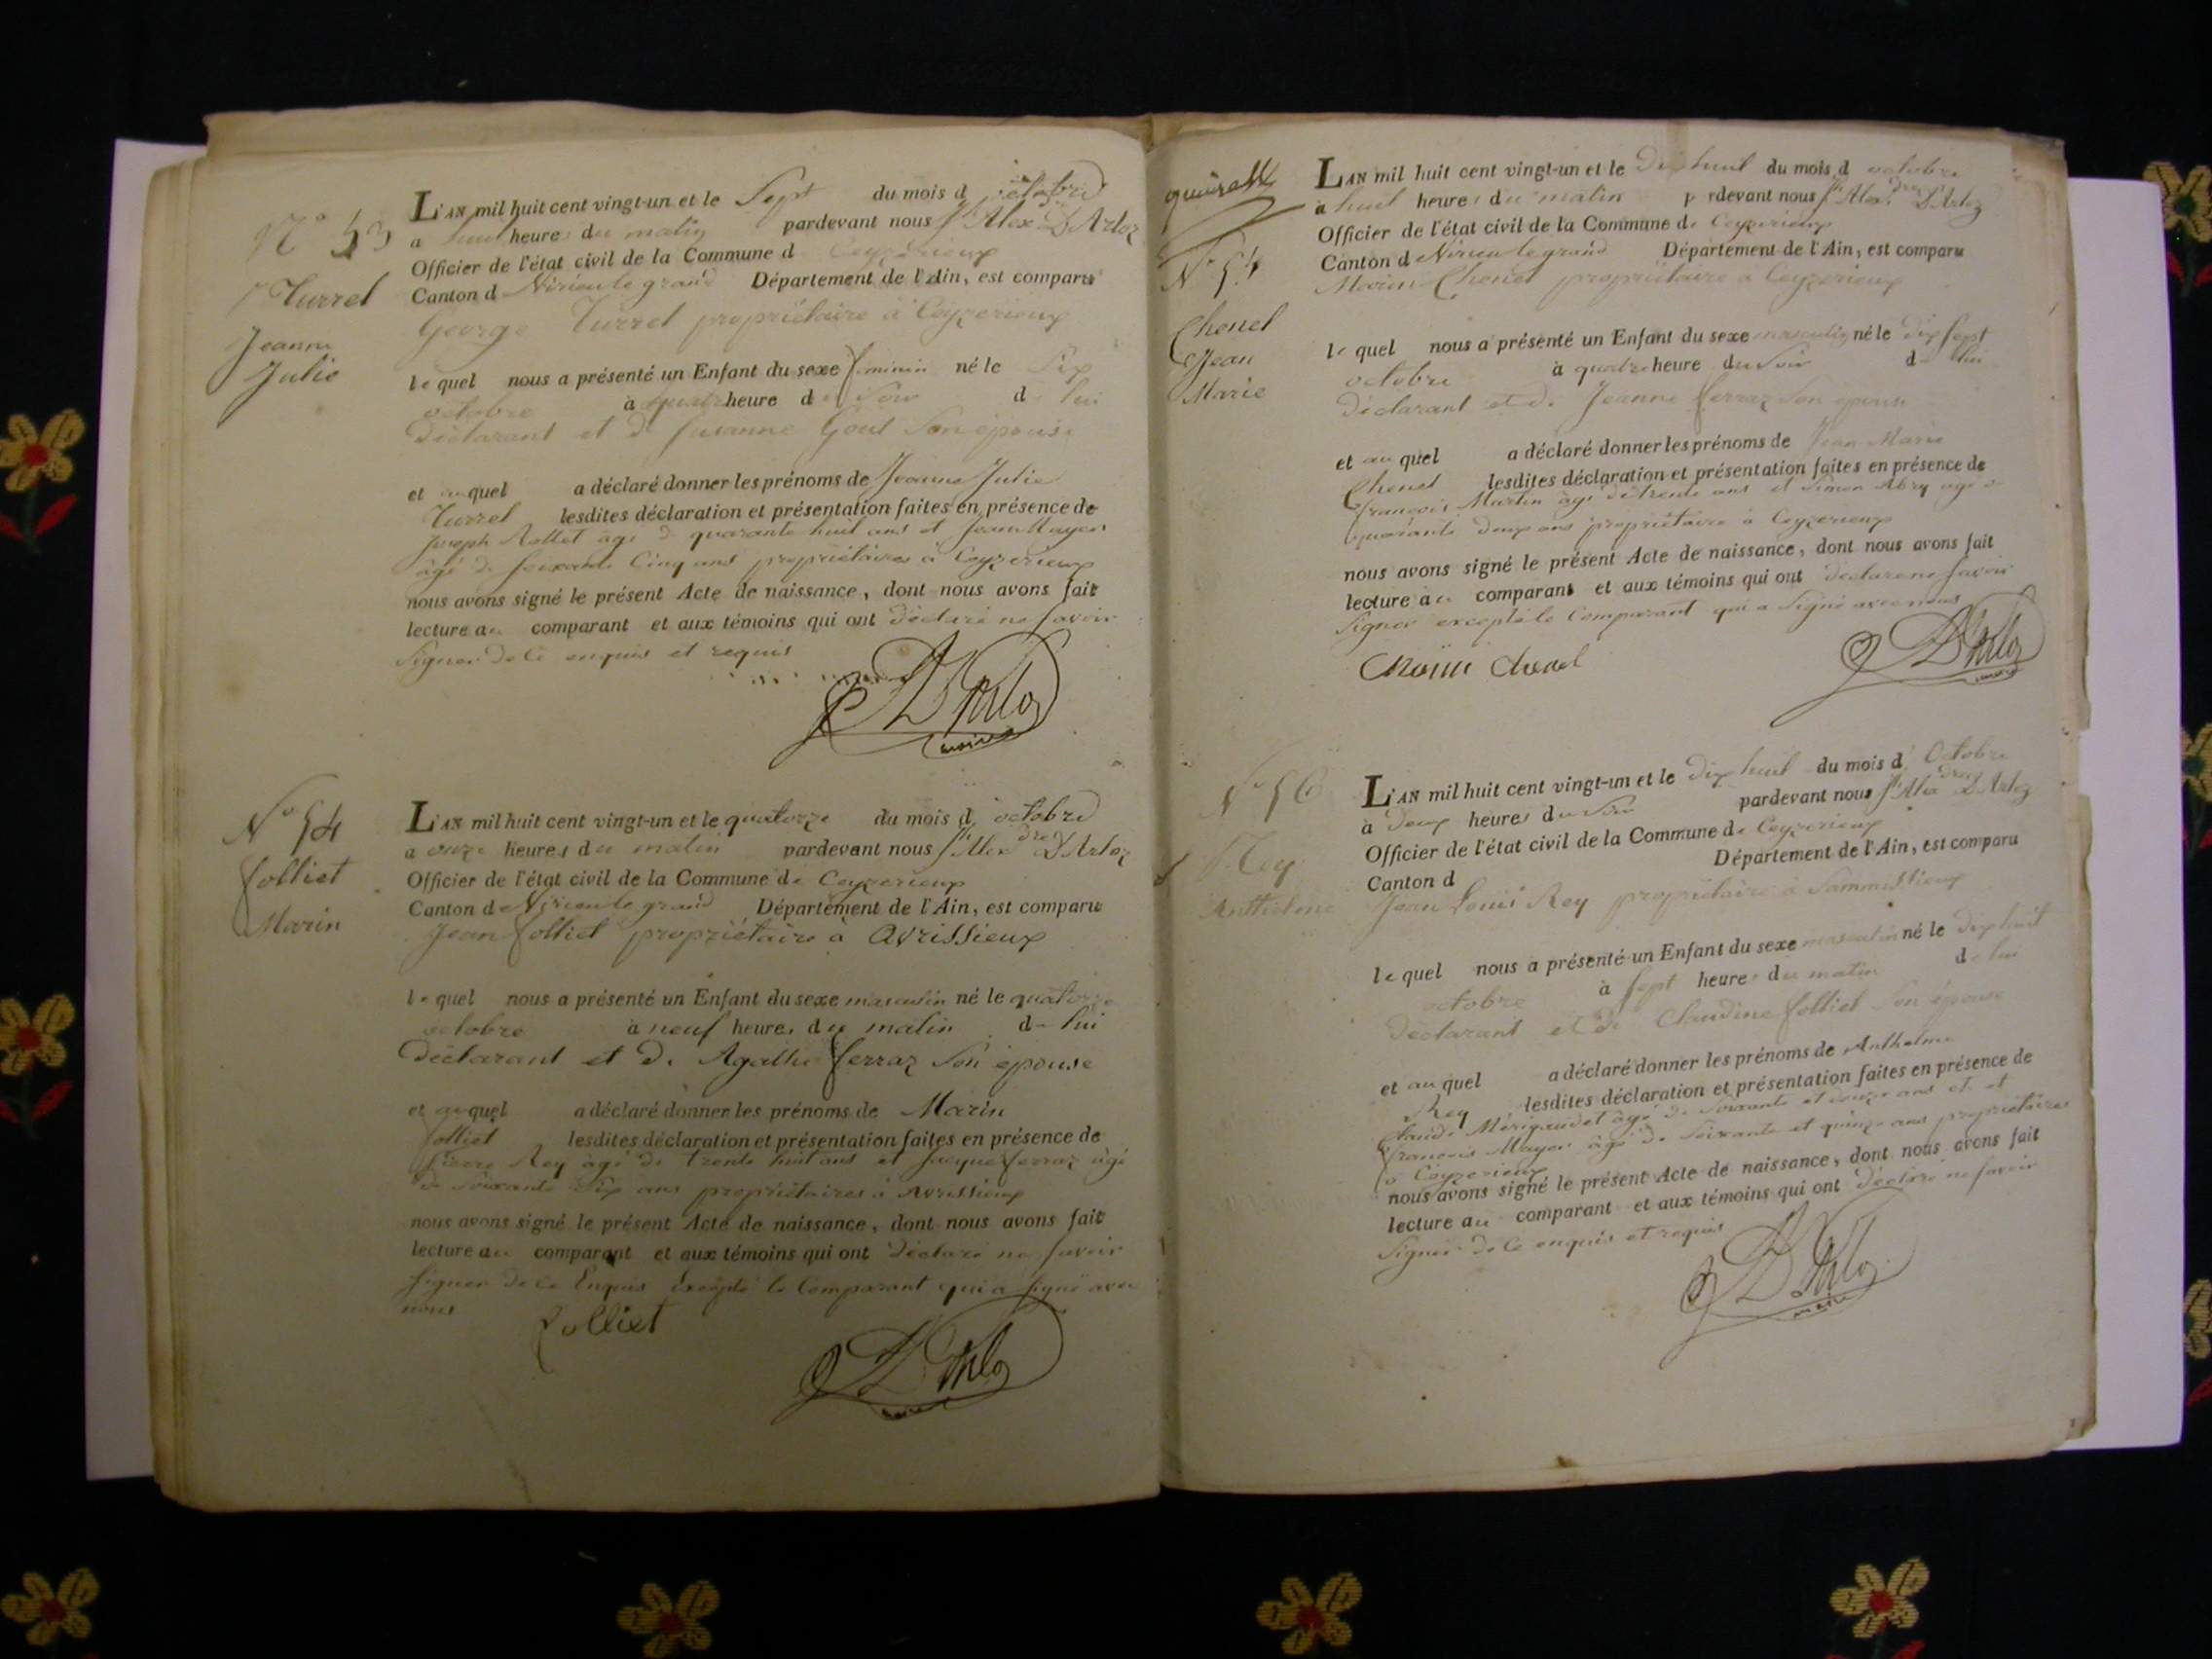 N° 53
Turrel
Jeanne
Julie
L'AN mil huit cent vingt-un et le Sept du mois d octobre
a heures du matin pardevant nous Jh Alexdre D'Arloz
Officier de l'état civil de la Commune d Ceyzerieux
Canton d Virieu le grand Département de l'Ain, est comparu
George Turrel propriétaire à Ceyzerieux
lequel nous a présenté un Enfant du sexe feminin né le Six
octobre à quatre heure du Soir de lui
déclarant et de Susanne Goul Son épouse
et auquel a déclaré donner les prénoms de Jeanne Julie
Turrel lesdites déclaration et présentation faites en présence de
Joseph Rollet âgé de quarante huit ans et Jean Mayer
âgé de soixante Cinq ans propriétaires à Ceyzerieux
nous avons signé le présent Acte de naissance, dont nous avons fait
lecture au comparant et aux témoins qui ont déclaré ne savoir
Signer de ce enquis et requis
D'Arloz
maire
N° 54
folliet
Marin
L'AN mil huit cent vingt-un et le quatorze du mois d octobre
a onze heures du matin pardevant nous Jh Alexdre D'Arloz
Officier de l'état civil de la Commune de Ceyzerieux
Canton de Virieu le grand Département de l'Ain, est comparu
Jean folliet propriétaire à Avrissieux
lequel nous a présenté un Enfant du sexe masculin né le quatorze
octobre à neuf heures du matin de lui
déclarant et de Agathe ferraz Son épouse
et auquel a déclaré donner les prénoms de Marin
folliet lesdites déclaration et présentation faites en présence de
Pierre Rey âgé de trente huit ans et Jacque ferraz âgé
de soixante Six ans propriétaires à Avrissieux
nous avons signé le présent Acte de naissance, dont nous avons fait
lecture au comparant et aux témoins qui ont déclaré ne savoir
Signer de ce Enquis excepté le Comparant qui a signé avec
nous
folliet
D'Arloz
maire
N° 54
Chenel
Jean
Marie
L'AN mil huit cent vingt-un et le Dix huit du mois d octobre
à huit heures du matin pardevant nous Jh Alexdre D'Arloz
Officier de l'état civil de la Commune de Ceyzerieux
Canton d Virieu le grand Département de l'Ain, est comparu
Marin Chenel propriétaire à Ceyzerieux
lequel nous a présenté un Enfant du sexe masculin né le dix sept
octobre à quatre heure du Soir de lui
déclarant et de Jeanne ferraz Son épouse
et auquel a déclaré donner les prénoms de Jean Marie
Chenel lesdites déclaration et présentation faites en présence de
françois Martin âgé de trente ans et Simon Abry âgé de
quarante deux ans propriétaire à Ceyzerieux
nous avons signé le présent Acte de naissance, dont nous avons fait
lecture au comparant et aux témoins qui ont déclaré ne savoir
Signer excepté le Comparant qui a Signé avec nous
D'Arloz
maire
N° 56
Rey
Anthelme
L'AN mil huit cent vingt-un et le Dix huit du mois d Octobre
à Deux heures du Soir pardevant nous Jh Alexdre D'Arloz
Officier de l'état civil de la Commune de Ceyzerieux
Canton d Département de l'Ain, est comparu
Jean Louis Rey propriétaire à
lequel nous a présenté un Enfant du sexe masculin né le Dix huit
octobre à sept heures du matin de lui
déclarant et de Claudine folliet Son épouse
et auquel a déclaré donner les prénoms de Anthelme
Rey lesdites déclaration et présentation faites en présence de
Claude âgé de soixante et ans et
françois Mayer âgé de soixante et quinze ans propriétaires
à Ceyzerieux
nous avons signé le présent Acte de naissance, dont nous avons fait
lecture au comparant et aux témoins qui ont déclaré ne savoir
Signer de ce enquis et requis
D'Arloz
maire